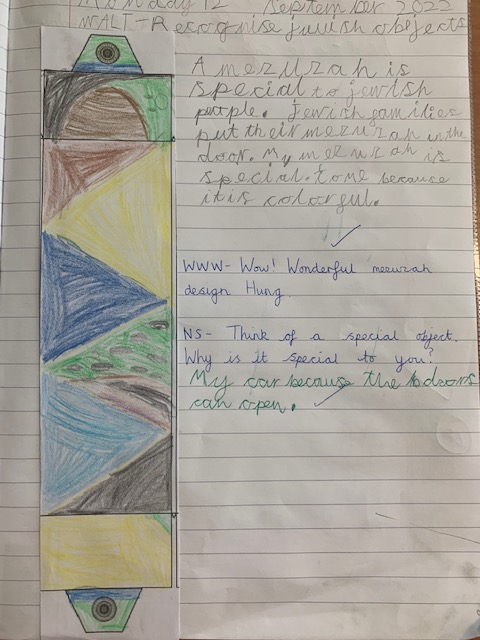 Monday 12 September 2022
WALT-Recognise jewish objects
A mezuzah is
special to jewish
people. Jewish families
put their mezuzah in the
door. My mezuzah is
special to me because
it is colorful.
WWW- Wow! Wonderful mezuzah
design Hung.
NS- Think of a special object.
Why is it special to you?
My car because the doors
can open.